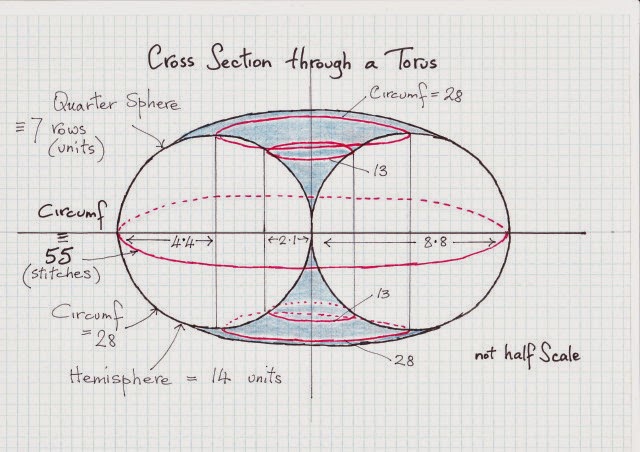 Cross Section through a Torus
Quarter Sphere
≡ 7 rows
(units)
Circumf = 28
13
Circumf
≡
55
(stitches)
4·4
2·1
8·8
Circumf
= 28
13
28
Hemisphere = 14 units
not half Scale